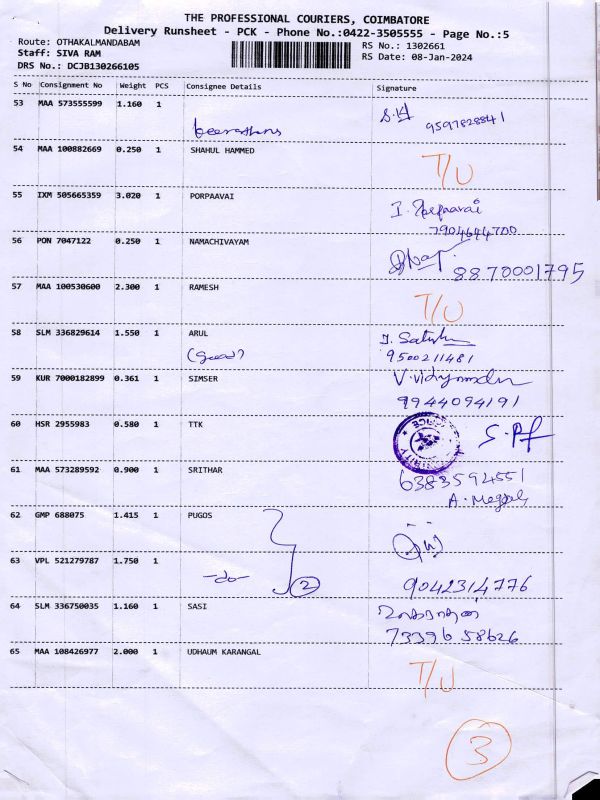 THE PROFESSIONAL COURIERS, COIMBATORE
Delivery Runsheet - PCK - Phone No.:0422-3505555 - Page No.:5
Route: OTHAKALMANDABAM
Staff: SIVA RAM
DRS No.: DCJB130266105
RS No.: 1302661
RS Date: 08-Jan-2024
S No Consignment No Weight PCS Consignee Details Signature
53 MAA 573555599 1.160 1
9597828841
54 MAA 100882669 0.250 1 SHAHUL HAMMED T/U
55 IXM 505665359 3.020 1 PORPAAVAI
7904644700
56 PON 7047122 0.250 1 NAMACHIVAYAM
8870001795
57 MAA 100530600 2.300 1 RAMESH T/U
58 SLM 336829614 1.550 1 ARUL
9500211481
59 KUR 7000182899 0.361 1 SIMSER
9944094191
60 HSR 2955983 0.580 1 TTK
61 MAA 573289592 0.900 1 SRITHAR 6383594551
62 GMP 688075 1.415 1 PUGOS
63 VPL 521279787 1.750 1
-do- 2 9042314776
64 SLM 336750035 1.160 1 SASI
73396 58626
65 MAA 108426977 2.000 1 UDHAUM KARANGAL T/U
3